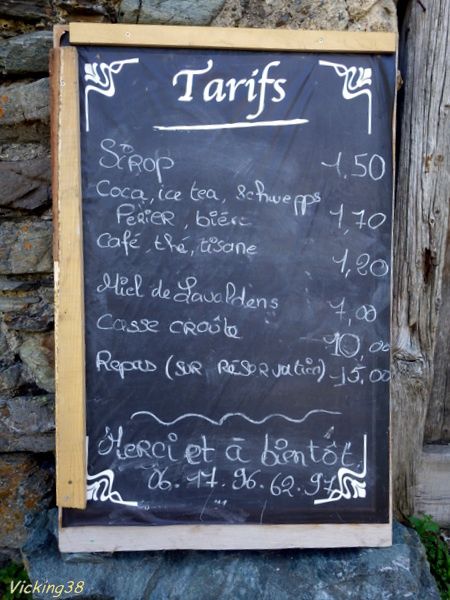 Tarifs
SiROP 1,50
Coca, ice tea, schwepps
PERiER, bière 1,70
Café, thé, tisane 1,20
Miel de Lavaldens 7,00
Casse CROûte 10,00
Repas (sur RéseRvation) 15,00
MERCi et à bientôt
06.17.96.62.97
Vicking38